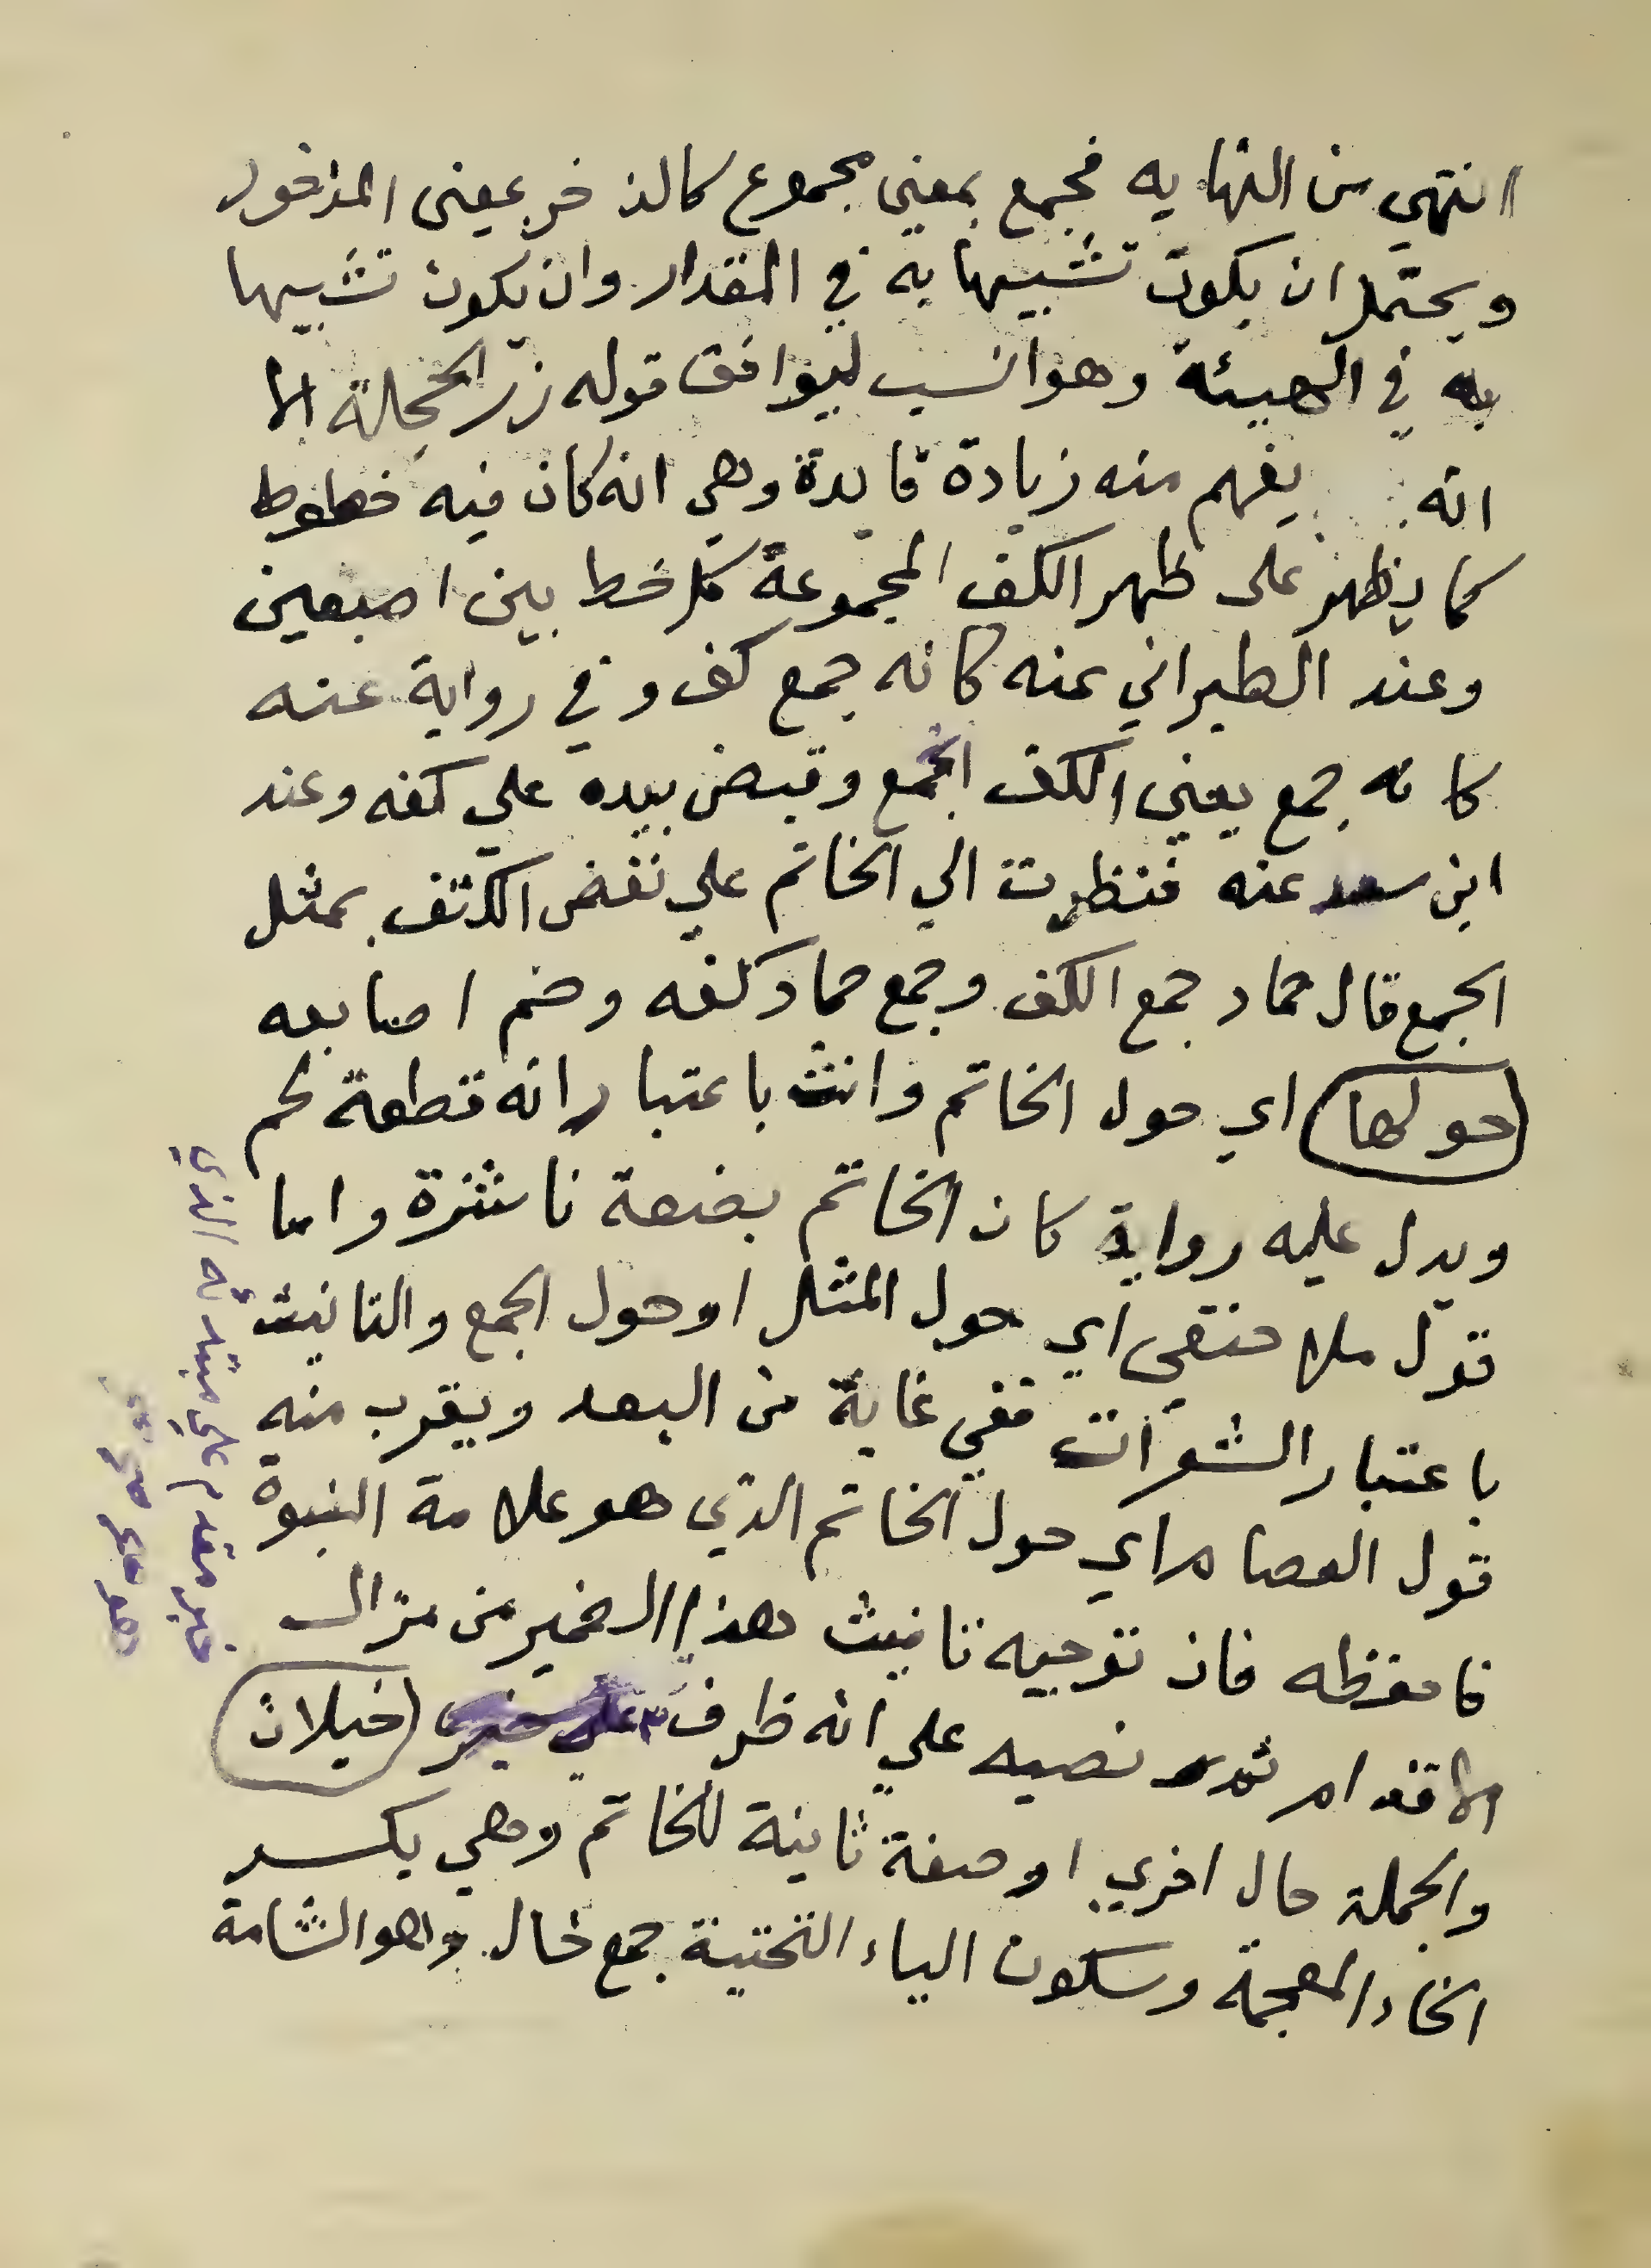 انتهي من النهايه فجمع بمعني مجموع كالذخر بمعنى المذخور
ويحتمل ان يكون تشبيها به في المقدار وان يكون تشبيها
به في الهيئة وهو انسب ليوافق قوله زر الحجلة الا
انه يفهم منه زيادة فايدة وهي انه كان فيه خطوط
كما يظهر على ظهر الكف المجموعة كل خط بين اصبعين
وعند الطبراني عنه كانه جمع كف وفي رواية عنه
كانه جمع يعني الكف الجمع وقبض بيده علي كفه وعند
ابن سعد عنه فنظرت الي الخاتم علي نغض الكتف بمثل
الجمع قال حماد جمع الكف وجمع حماد كفه وضم اصابعه
حولها اي حول الخاتم وانث باعتبار انه قطعة لحم
ويدل عليه رواية كان الخاتم بضعة ناشزة واما
قول ملا حنفي اي حول المثل او حول الجمع والتانيث
باعتبار الشعرات ففي غاية من البعد ويقرب منه
قول العصام اي حول الخاتم الذي هو علامة النبوة
فاحفظه فان توجيه تانيث هذا الضمير من مزال
الاقدام ثم نصبه علي انه ظرف ٣ خيلان
والجملة حال اخري او صفة ثانية للخاتم وهي بكسر
الخاء المعجمة وسكون الياء التحتية جمع خال وهو الشامة
خبر مقدم علي مبتدئه الذي